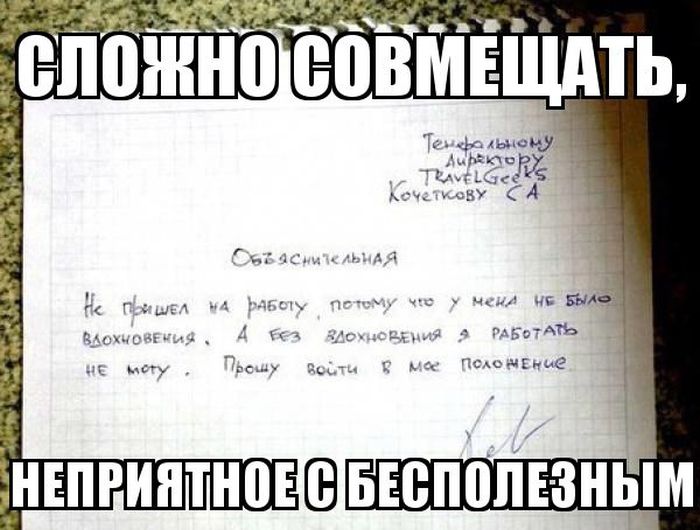 СЛОЖНО СОВМЕЩАТЬ,
Генеральному
Директору
TRAVELGeeks
Кочеткову СА
Объяснительная
Не пришел на работу, потому что у меня не было
вдохновения. А без вдохновения я работать
не могу. Прошу войти в мое положение
НЕПРИЯТНОЕ С БЕСПОЛЕЗНЫМ